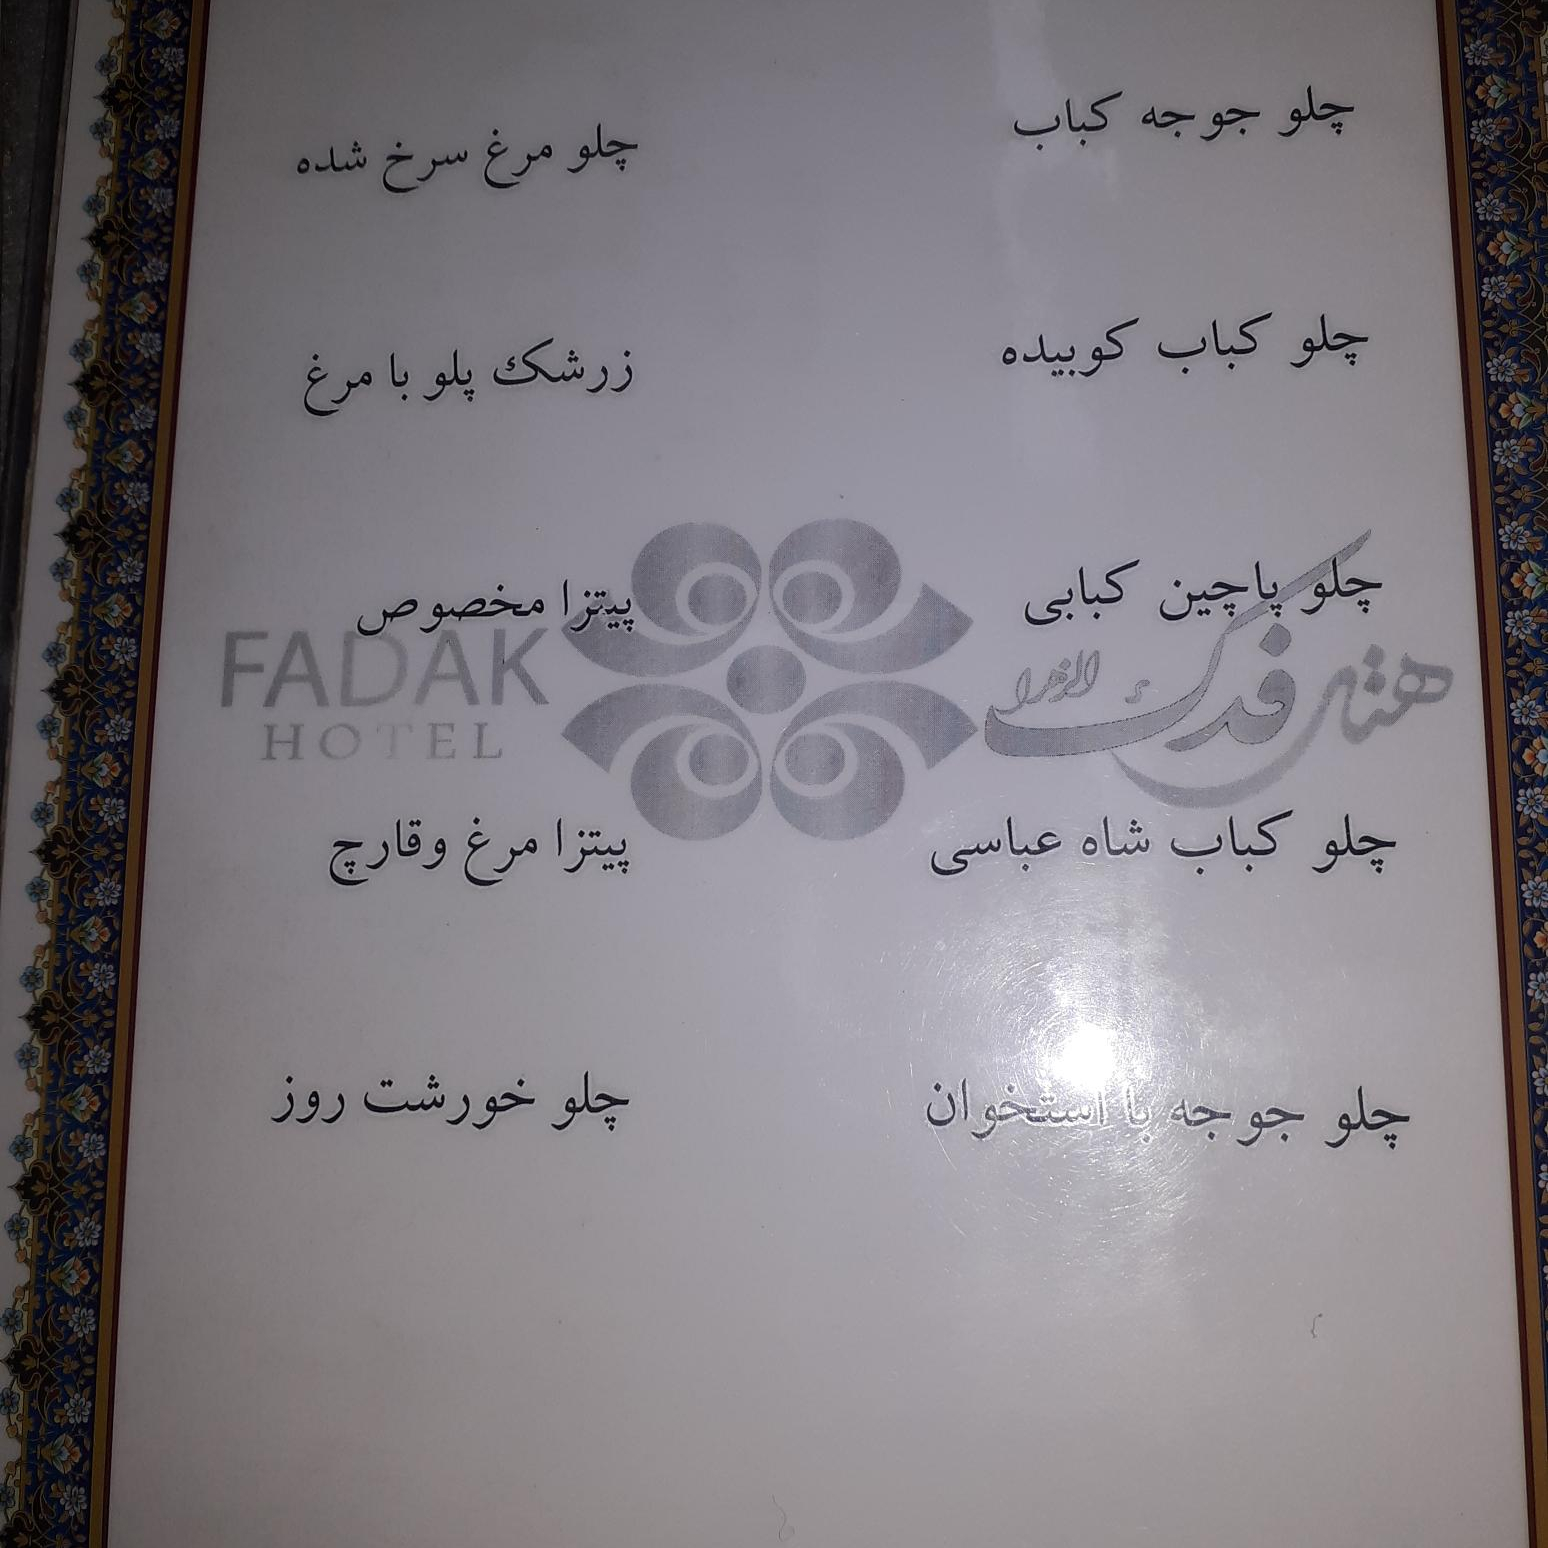 چلو جوجه کباب
چلو کباب کوبیده
چلو پاچین کبابی
چلو کباب شاه عباسی
چلو جوجه با استخوان
چلو مرغ سرخ شده
زرشک پلو با مرغ
پیتزا مخصوص
پیتزا مرغ وقارچ
چلو خورشت روز
هتل فدک الزهرا
FADAK
HOTEL